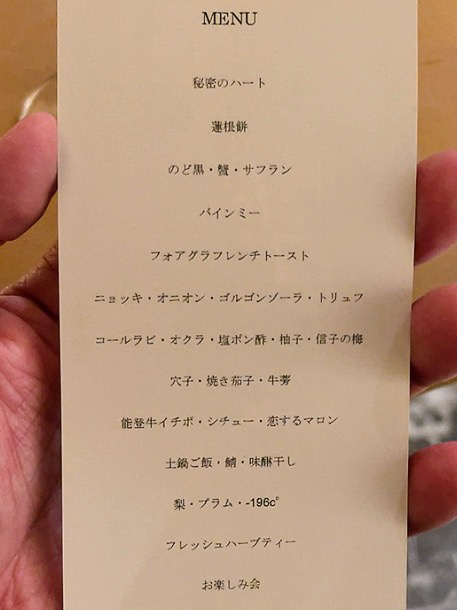 MENU
秘密のハート
蓮根餅
のど黒・蟹・サフラン
バインミー
フォアグラフレンチトースト
ニョッキ・オニオン・ゴルゴンゾーラ・トリュフ
コールラビ・オクラ・塩ポン酢・柚子・信子の梅
穴子・焼き茄子・牛蒡
能登牛イチボ・シチュー・恋するマロン
土鍋ご飯・鯖・味醂干し
梨・プラム・-196c°
フレッシュハーブティー
お楽しみ会